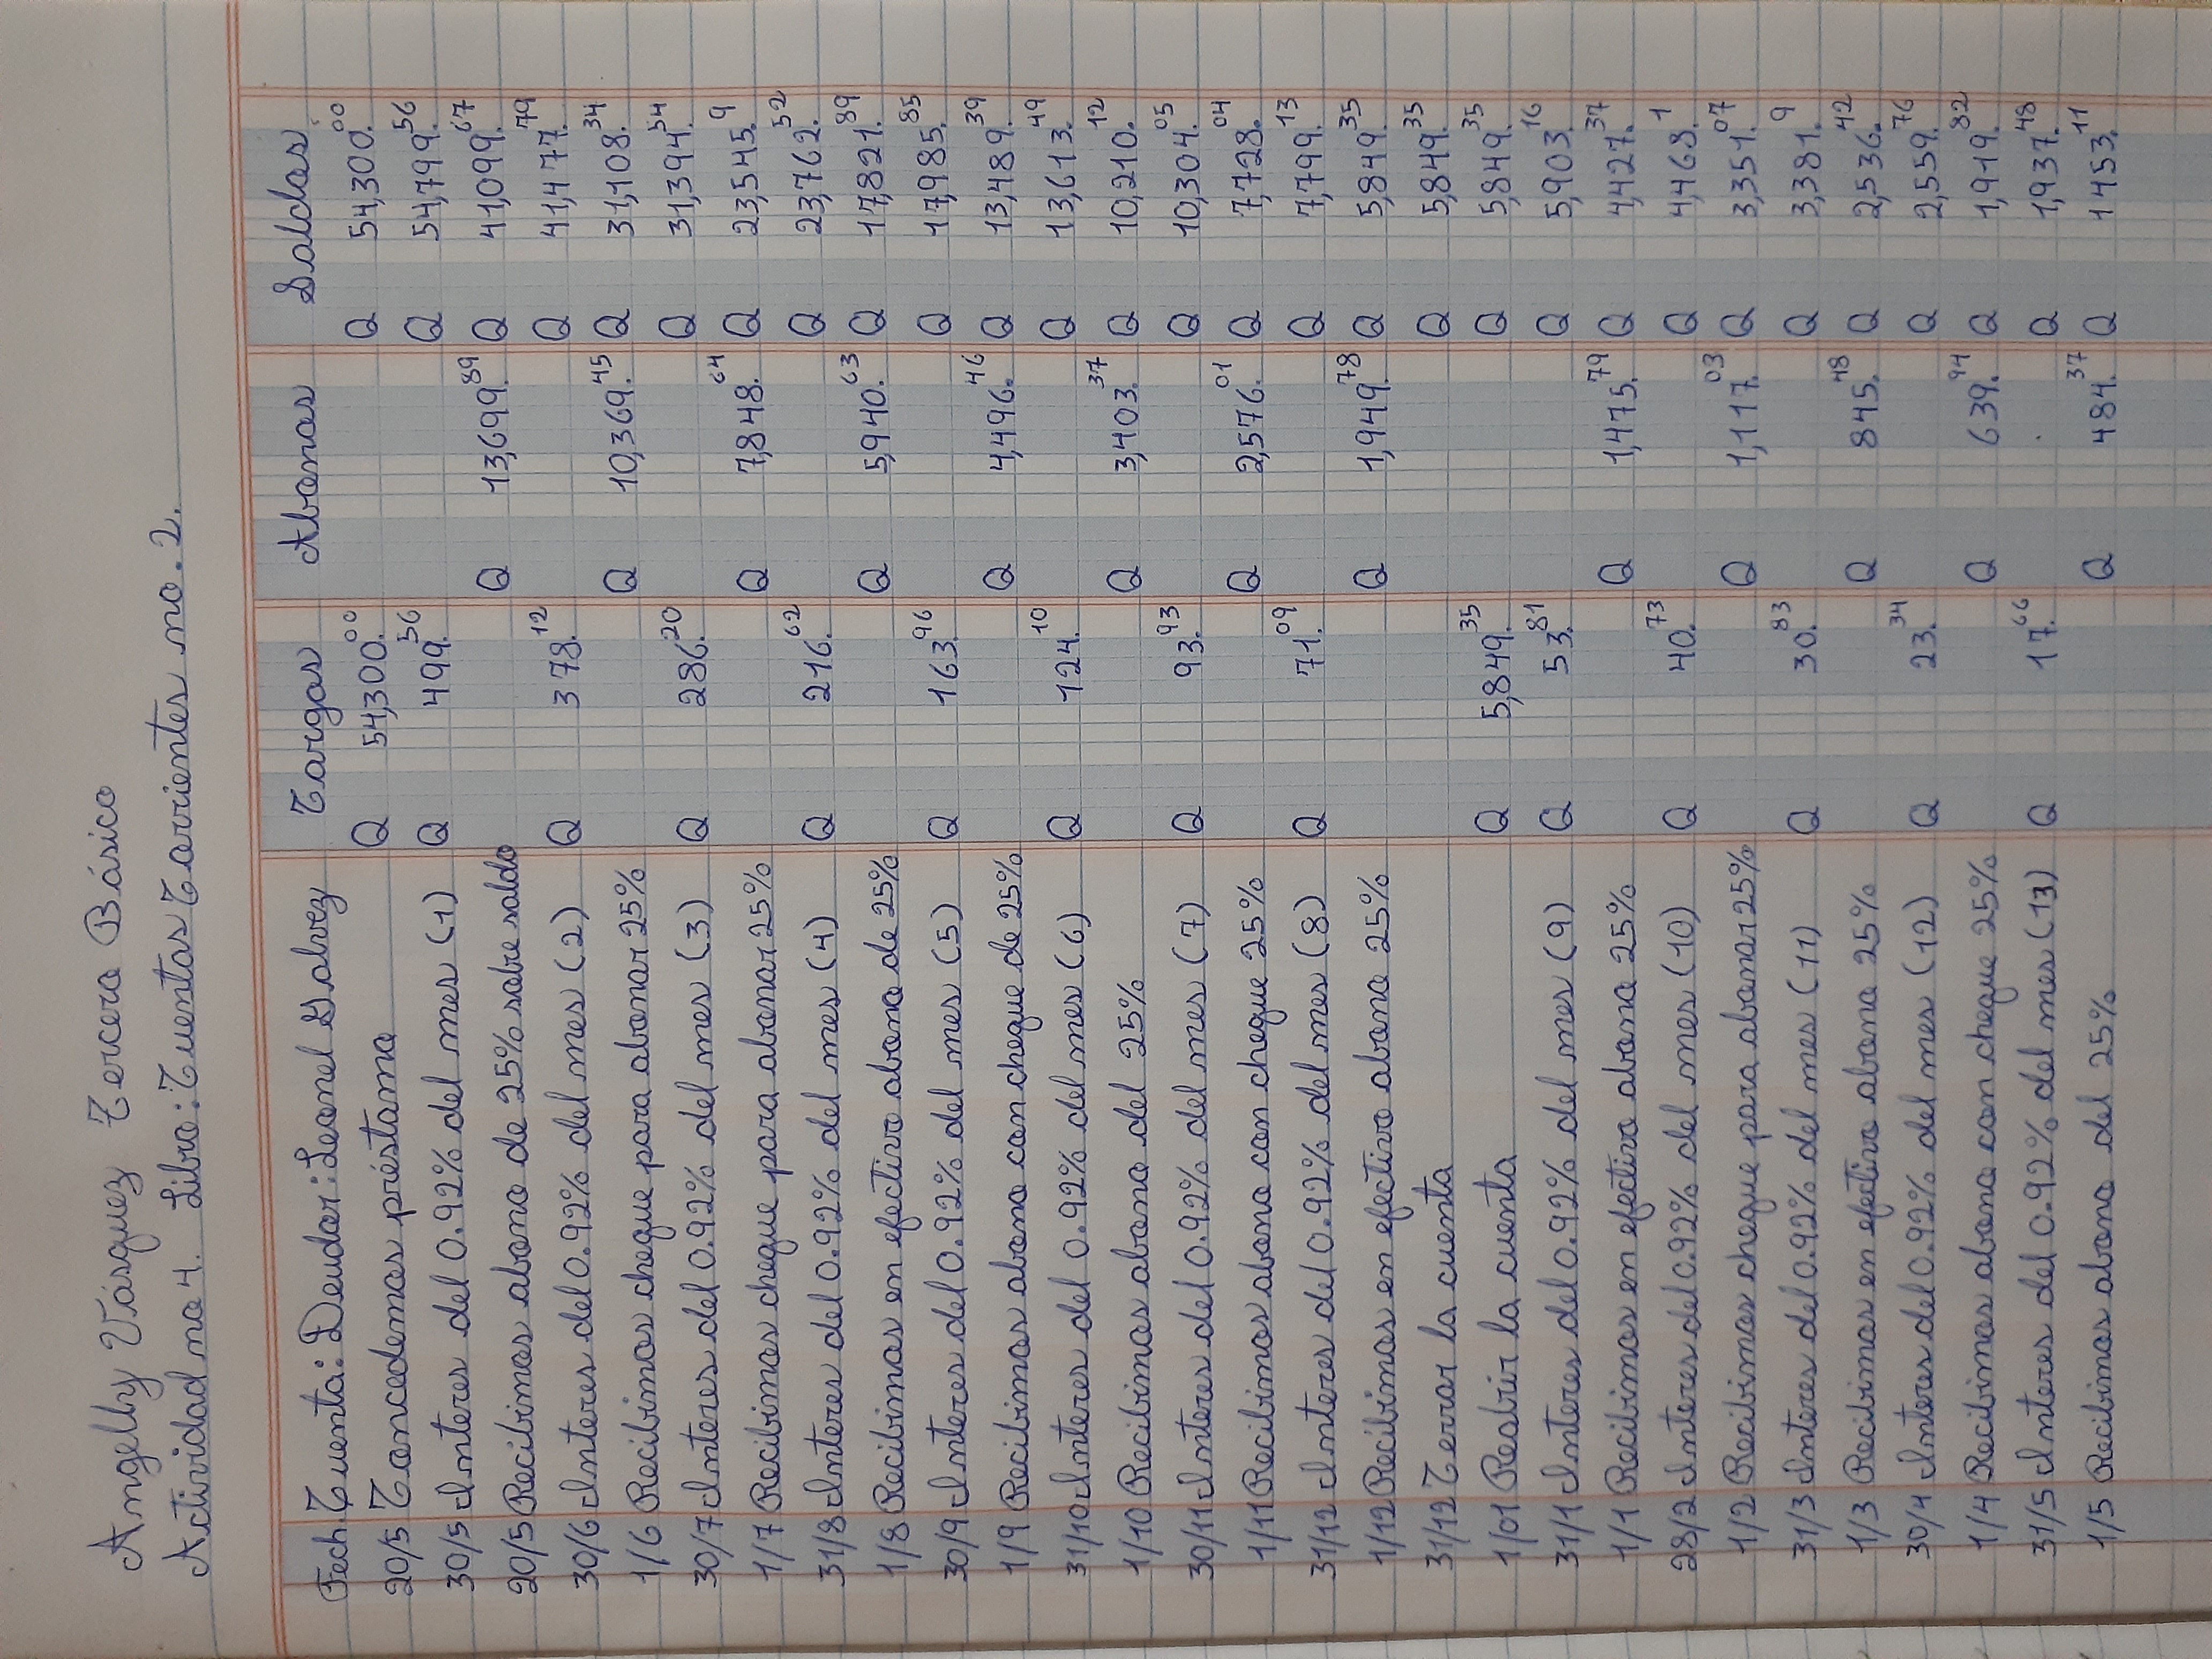 Angelby Vásquez Tercero Básico
Actividad no 4. Libro: Cuentas Corrientes no. 2.
Fech. Cuenta: Deudor: Leonel Galvez Cargos Abonos Saldos
20/5 Concedemos préstamo Q 54,300.00 Q 54,300.00
30/5 Interes del 0.92% del mes (1) Q 499.56 Q 54,799.56
20/5 Recibimos abono de 25% sobre saldo Q 13,699.89 Q 41,099.67
30/6 Interes del 0.92% del mes (2) Q 378.12 Q 41,477.79
1/6 Recibimos cheque para abonar 25% Q 10,369.45 Q 31,108.34
30/7 Interes del 0.92% del mes (3) Q 286.20 Q 31,394.54
1/7 Recibimos cheque para abonar 25% Q 7,848.64 Q 23,545.9
31/8 Interes del 0.92% del mes (4) Q 216.62 Q 23,762.52
1/8 Recibimos en efectivo abono de 25% Q 5,940.63 Q 17,821.89
30/9 Interes del 0.92% del mes (5) Q 163.96 Q 17,985.85
1/9 Recibimos abono con cheque de 25% Q 4,496.46 Q 13,489.39
31/10 Interes del 0.92% del mes (6) Q 124.10 Q 13,613.49
1/10 Recibimos abono del 25% Q 3,403.37 Q 10,210.12
30/11 Interes del 0.92% del mes (7) Q 93.93 Q 10,304.05
1/11 Recibimos abono con cheque 25% Q 2,576.01 Q 7,728.04
31/12 Interes del 0.92% del mes (8) Q 71.09 Q 7,799.13
1/12 Recibimos en efectivo abono 25% Q 1,949.78 Q 5,849.35
31/12 Cerrar la cuenta Q 5,849.35
1/01 Reabrir la cuenta Q 5,849.35 Q 5,849.35
31/1 Interes del 0.92% del mes (9) Q 53.81 Q 5,903.16
1/1 Recibimos en efectivo abono 25% Q 1,475.79 Q 4,427.37
28/2 Interes del 0.92% del mes (10) Q 40.73 Q 4,468.1
1/2 Recibimos cheque para abonar 25% Q 1,117.03 Q 3,351.07
31/3 Interes del 0.92% del mes (11) Q 30.83 Q 3,381.9
1/3 Recibimos en efectivo abono 25% Q 845.48 Q 2,536.42
30/4 Interes del 0.92% del mes (12) Q 23.34 Q 2,559.76
1/4 Recibimos abono con cheque 25% Q 639.94 Q 1,919.82
31/5 Interes del 0.92% del mes (13) Q 17.66 Q 1,937.48
1/5 Recibimos abono del 25% Q 484.37 Q 1453.11